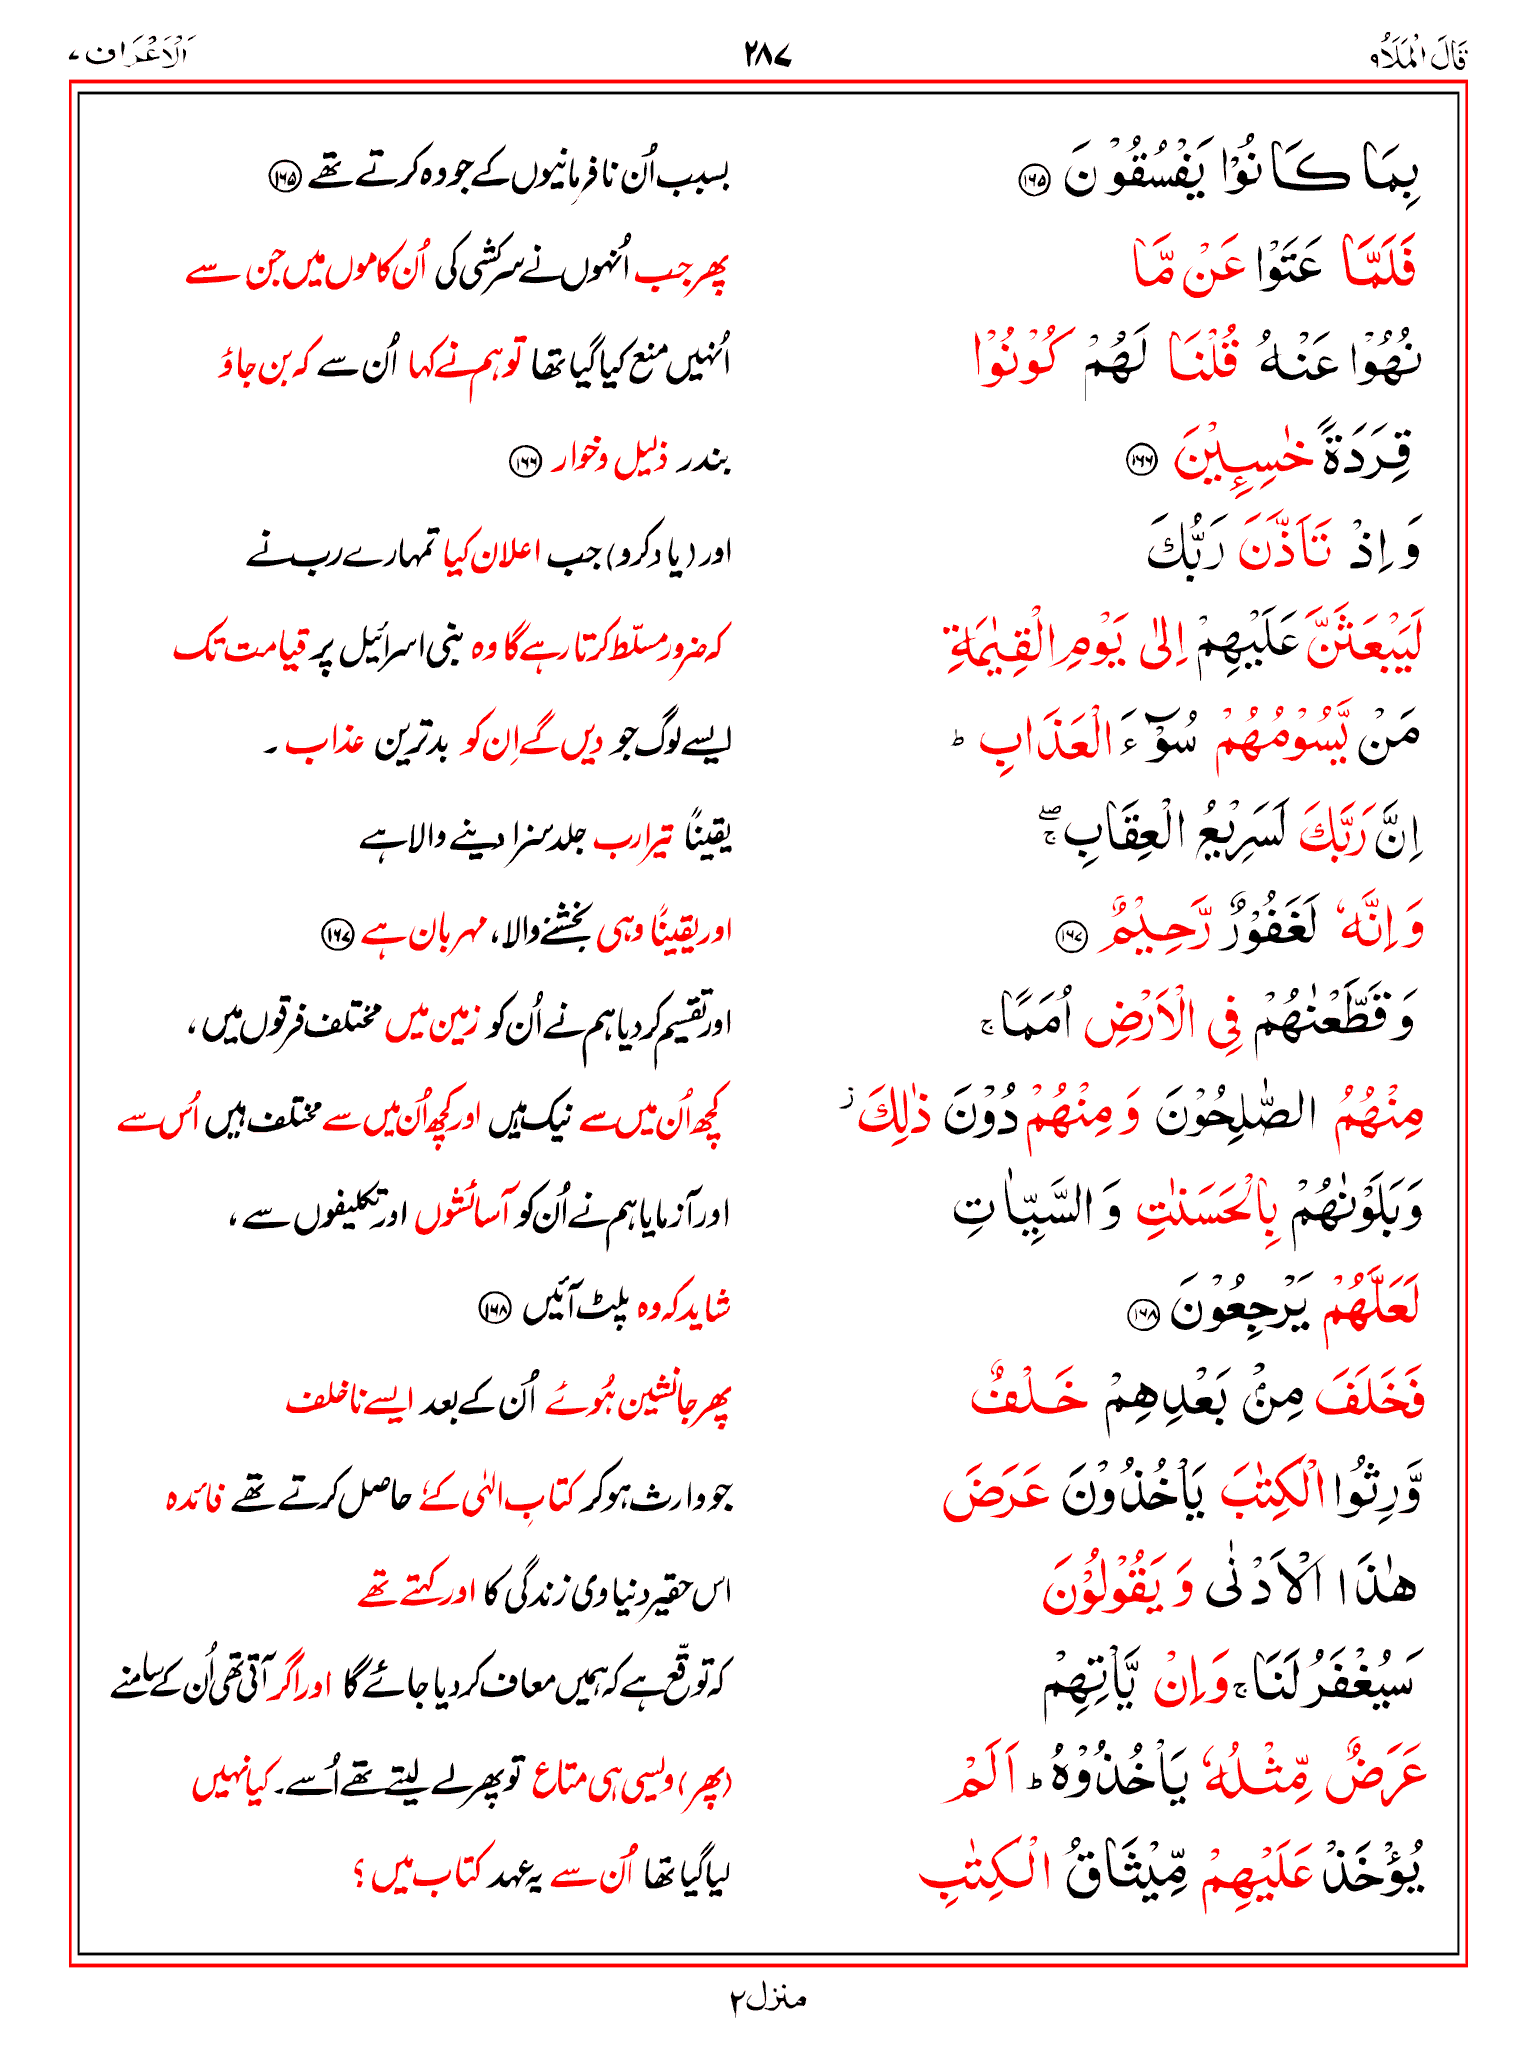 قَالَ الْمَلَاُ ۹ ۲۸۷ اَلْاَعْرَاف ۷
بِمَا كَانُوْا يَفْسُقُوْنَ ۝۱۶۵ بسبب اُن نافرمانیوں کے جو وہ کرتے تھے ۝۱۶۵
فَلَمَّا عَتَوْا عَنْ مَّا پھر جب اُنہوں نے سرکشی کی اُن کاموں میں جن سے
نُهُوْا عَنْهُ قُلْنَا لَهُمْ كُوْنُوْا اُنہیں منع کیا گیا تھا تو ہم نے کہا اُن سے کہ بن جاؤ
قِرَدَةً خٰسِـِٕيْنَ ۝۱۶۶ بندر ذلیل وخوار ۝۱۶۶
وَ اِذْ تَاَذَّنَ رَبُّكَ اور (یاد کرو) جب اعلان کیا تمہارے رب نے
لَيَبْعَثَنَّ عَلَيْهِمْ اِلٰى يَوْمِ الْقِيٰمَةِ کہ ضرور مسلّط کرتا رہے گا وہ بنی اسرائیل پر قیامت تک
مَنْ يَّسُوْمُهُمْ سُوْٓءَ الْعَذَابِ ؕ ایسے لوگ جو دیں گے اِن کو بدترین عذاب ۔
اِنَّ رَبَّكَ لَسَرِيْعُ الْعِقَابِ ۚۖ یقینًا تیرا رب جلد سزا دینے والا ہے
وَ اِنَّهٗ لَغَفُوْرٌ رَّحِيْمٌ ۝۱۶۷ اور یقینًا وہی بخشنے والا، مہربان ہے ۝۱۶۷
وَ قَطَّعْنٰهُمْ فِى الْاَرْضِ اُمَمًا ۚ اور تقسیم کر دیا ہم نے اُن کو زمین میں مختلف فرقوں میں،
مِنْهُمُ الصّٰلِحُوْنَ وَ مِنْهُمْ دُوْنَ ذٰلِكَ ؗ کچھ اُن میں سے نیک ہیں اور کچھ اُن میں سے مختلف ہیں اُس سے
وَ بَلَوْنٰهُمْ بِالْحَسَنٰتِ وَ السَّيِّاٰتِ اور آزمایا ہم نے اُن کو آسائشوں اور تکلیفوں سے،
لَعَلَّهُمْ يَرْجِعُوْنَ ۝۱۶۸ شاید کہ وہ پلٹ آئیں ۝۱۶۸
فَخَلَفَ مِنْۢ بَعْدِهِمْ خَلْفٌ پھر جانشین ہُوئے اُن کے بعد ایسے ناخلف
وَّرِثُوا الْكِتٰبَ يَاْخُذُوْنَ عَرَضَ جو وارث ہو کر کتابِ الٰہی کے، حاصل کرتے تھے فائدہ
هٰذَا الْاَدْنٰى وَ يَقُوْلُوْنَ اس حقیر دنیاوی زندگی کا اور کہتے تھے
سَيُغْفَرُ لَنَا ۚ وَ اِنْ يَّاْتِهِمْ کہ توقّع ہے کہ ہمیں معاف کر دیا جائے گا اور اگر آتی تھی اُن کے سامنے
عَرَضٌ مِّثْلُهٗ يَاْخُذُوْهُ ؕ اَلَمْ (پھر) ویسی ہی متاع تو پھر لے لیتے تھے اُسے۔ کیا نہیں
يُؤْخَذْ عَلَيْهِمْ مِّيْثَاقُ الْكِتٰبِ لیا گیا تھا اُن سے یہ عہد کتاب میں؟
منزل ۲